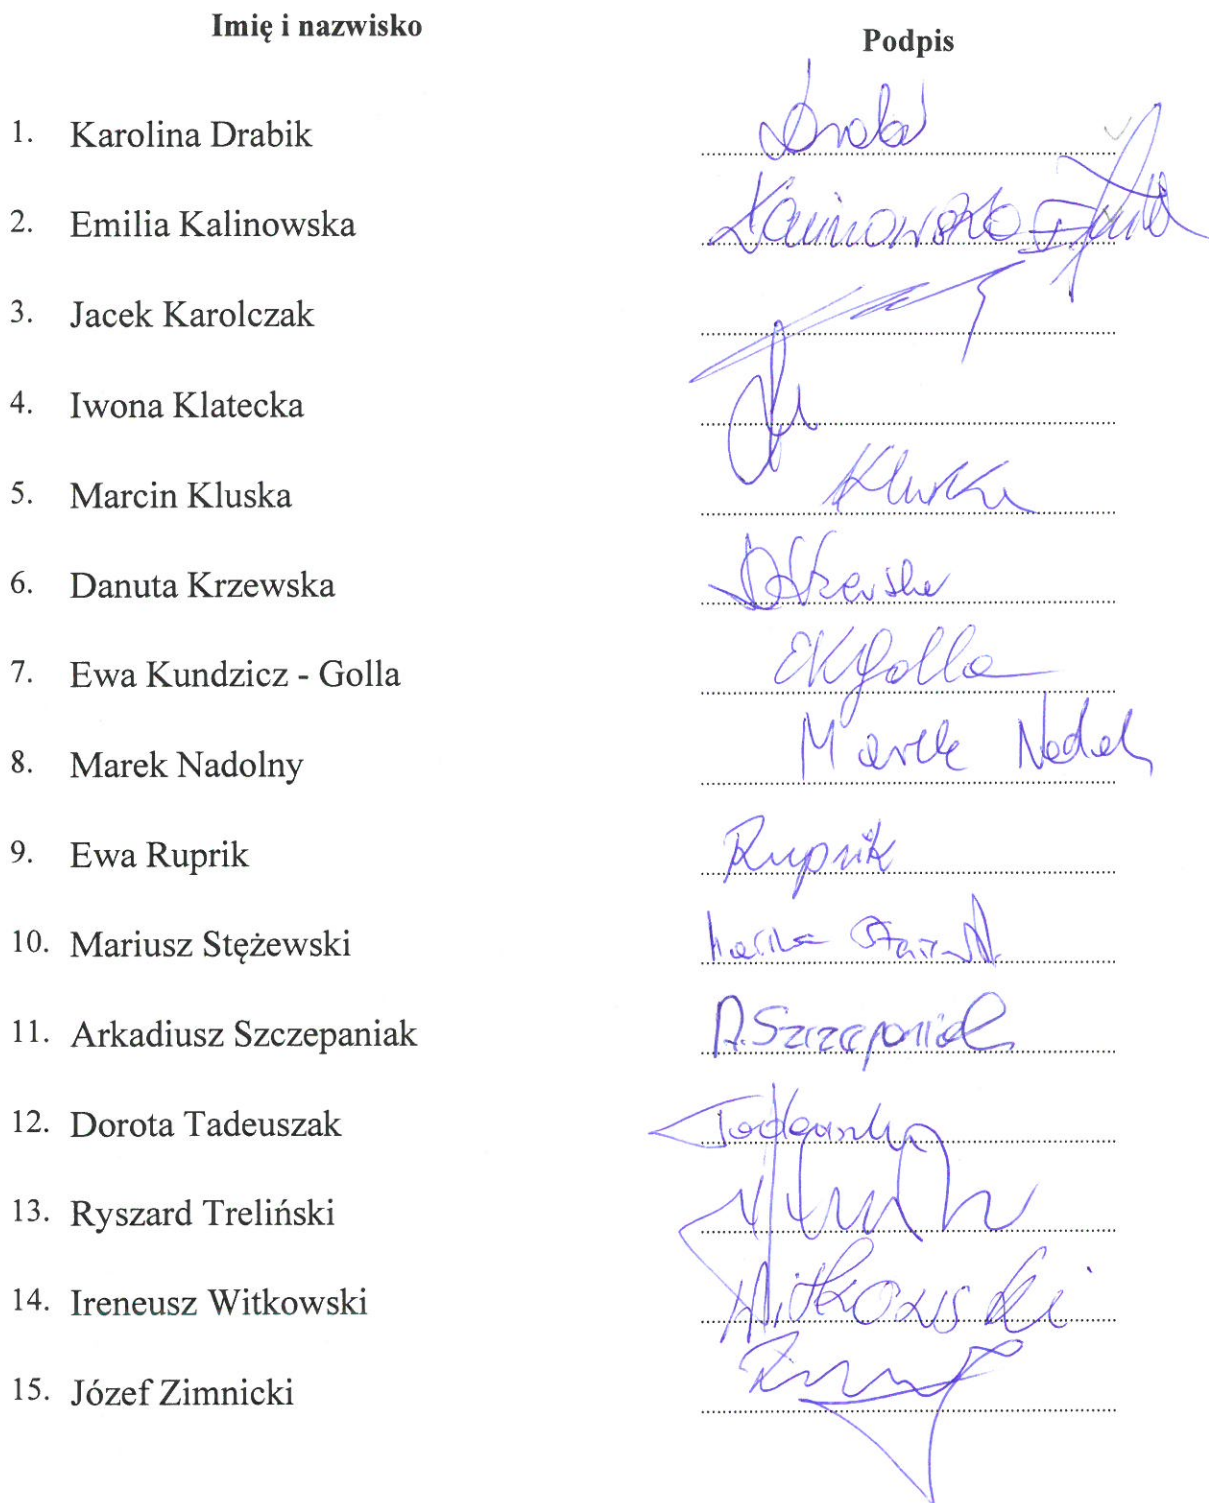 Imię i nazwisko
Podpis
1. Karolina Drabik
2. Emilia Kalinowska
3. Jacek Karolczak
4. Iwona Klatecka
5. Marcin Kluska Kluska
6. Danuta Krzewska
7. Ewa Kundzicz - Golla EKGolla
8. Marek Nadolny Marek
9. Ewa Ruprik Ruprik
10. Mariusz Stężewski
11. Arkadiusz Szczepaniak A.Szczepaniak
12. Dorota Tadeuszak
13. Ryszard Treliński
14. Ireneusz Witkowski Witkowski
15. Józef Zimnicki